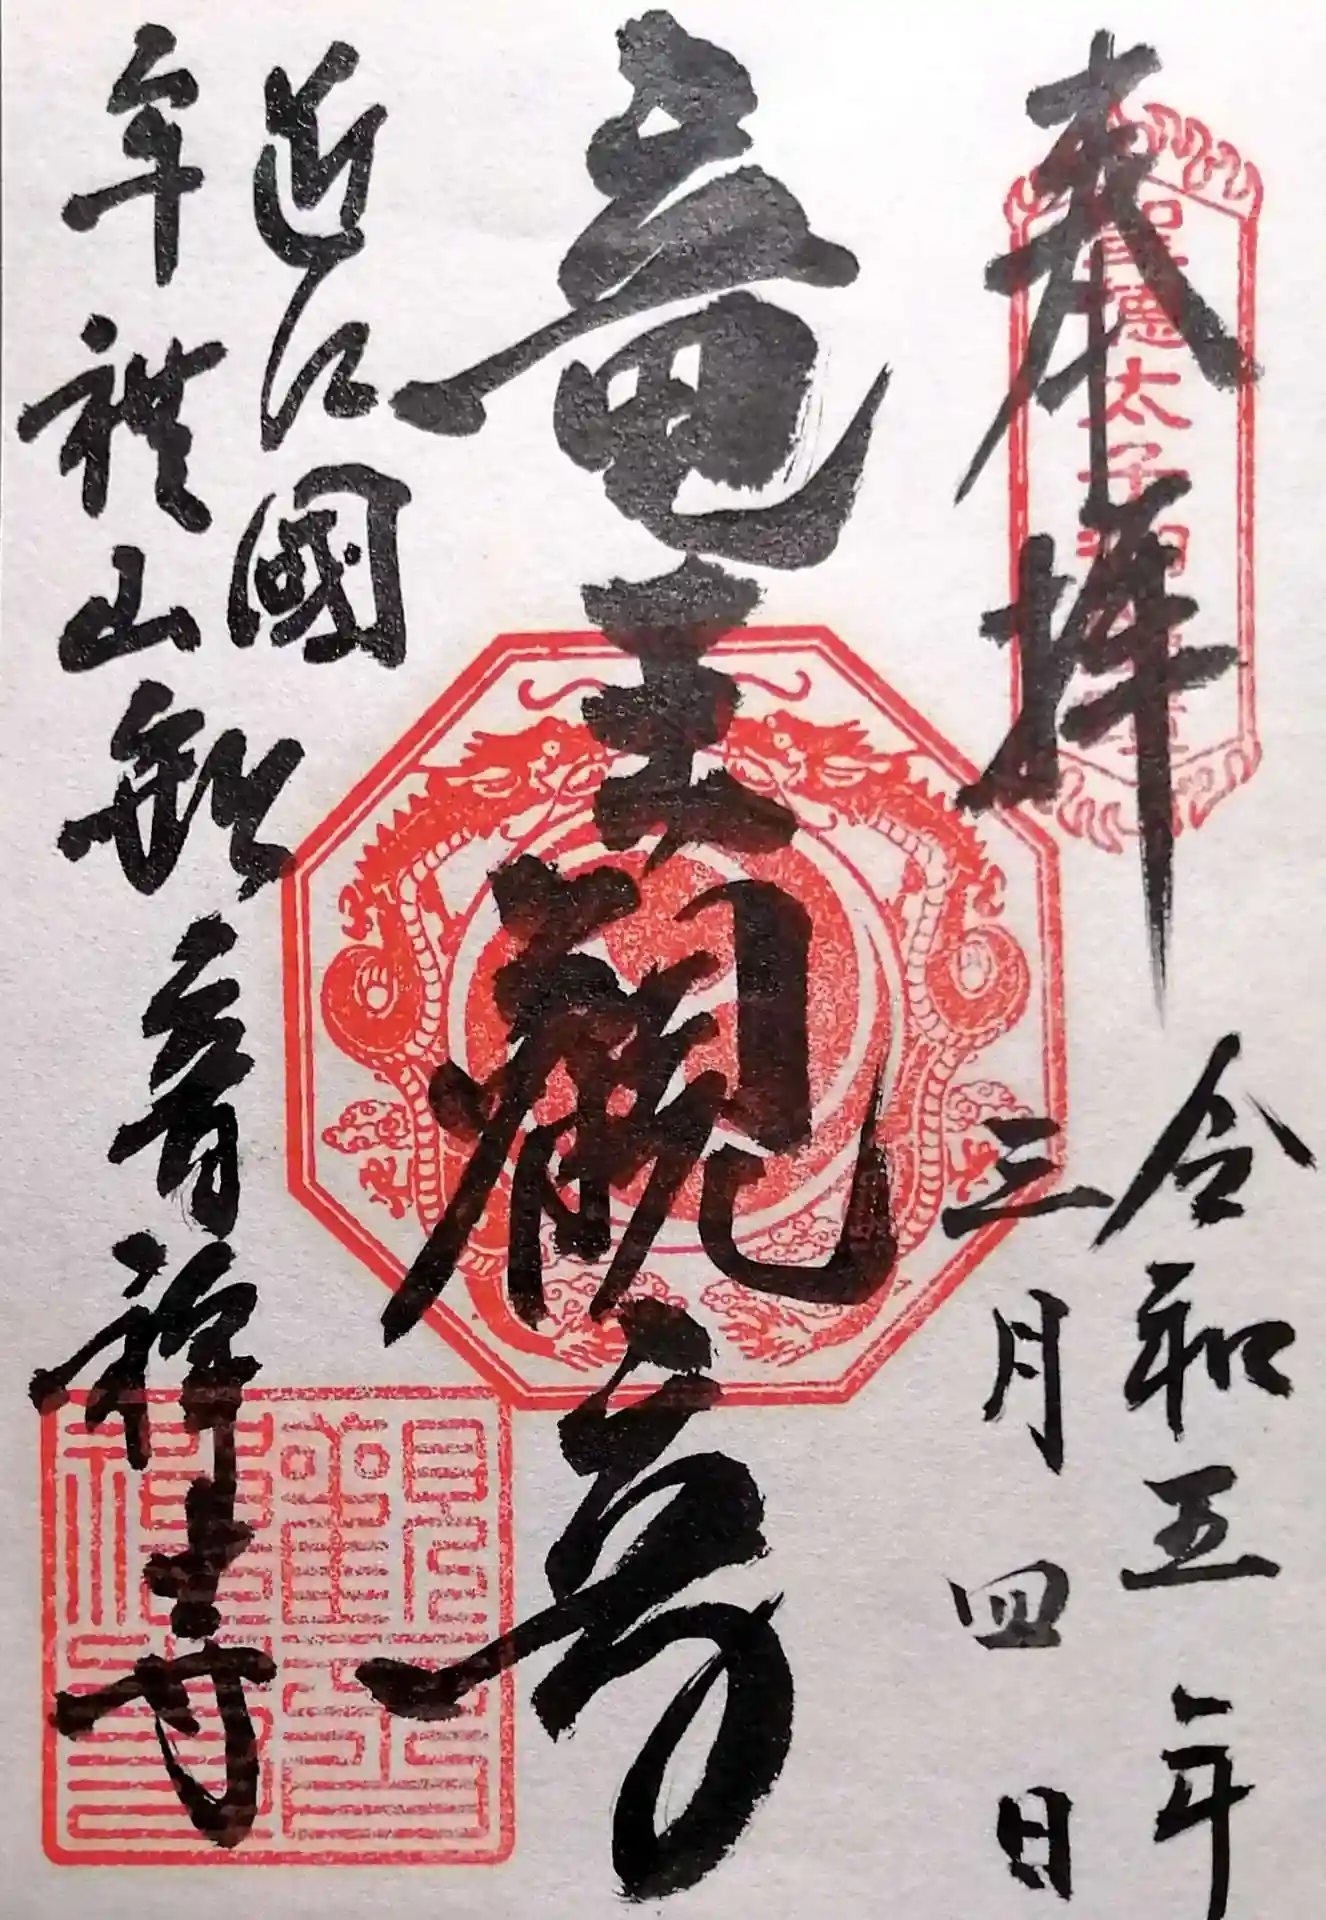 奉拝
聖徳太子
令和五年
三月四日
竜王観音
近江國
牟禮山観音禅寺